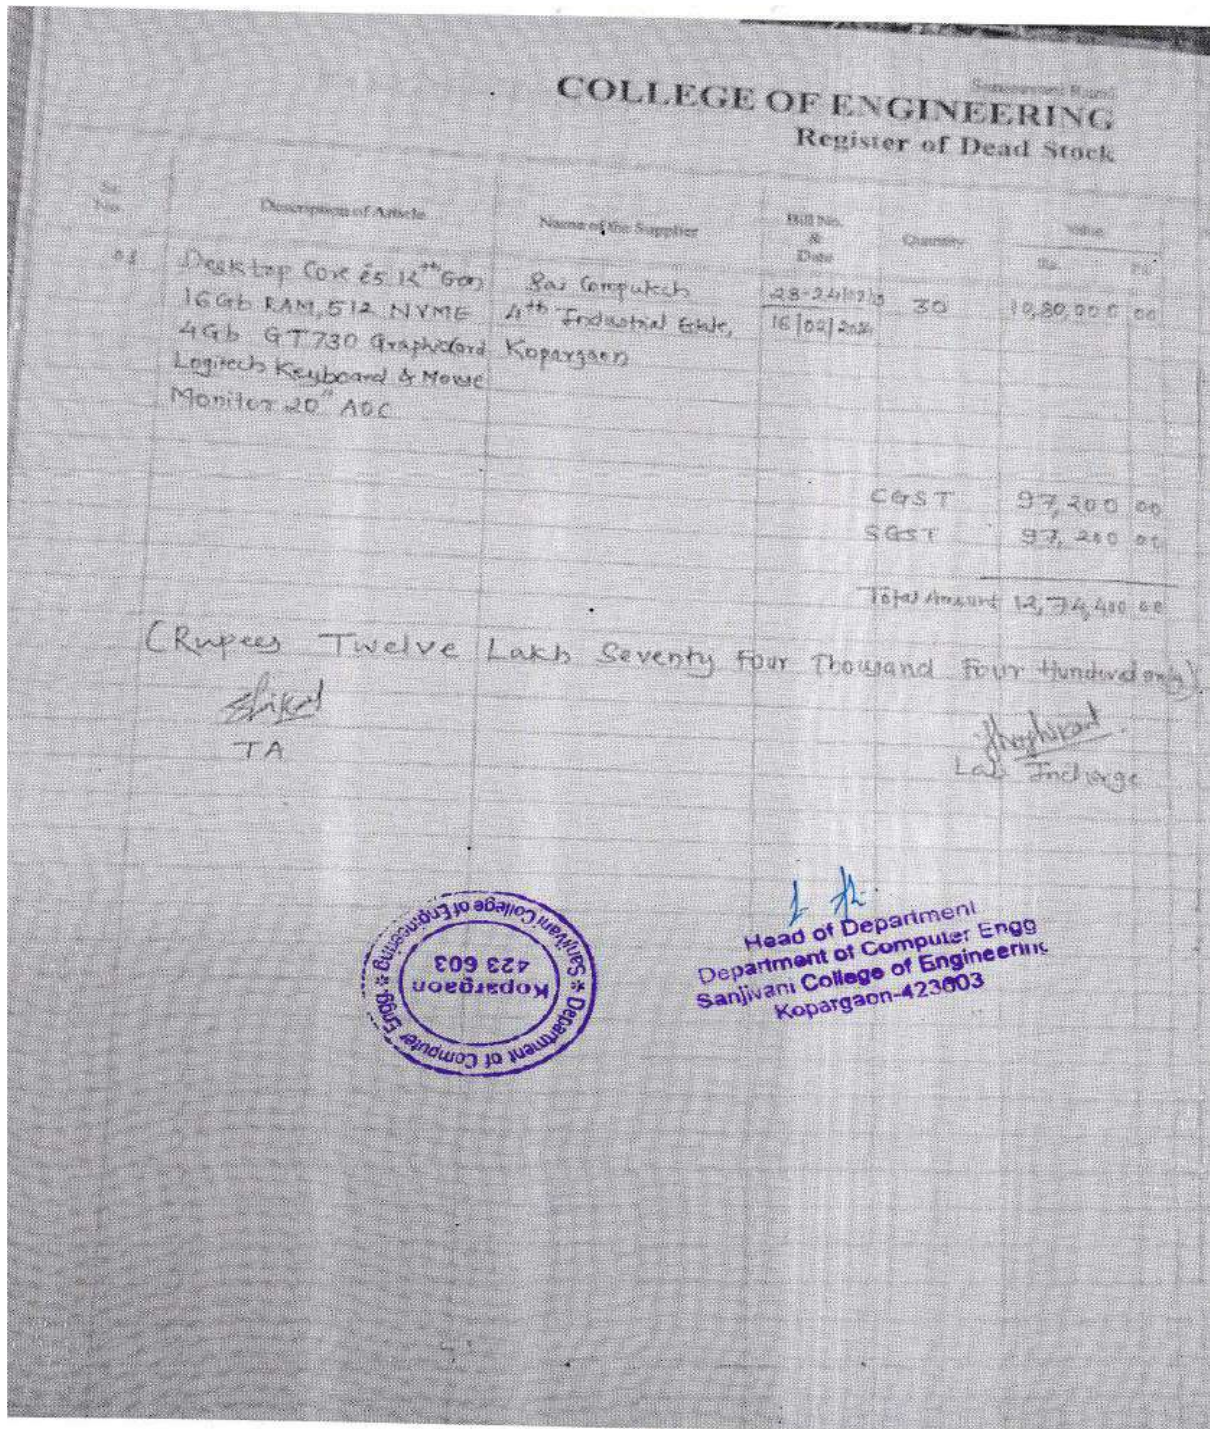 COLLEGE OF ENGINEERING
Register of Dead Stock
Sr. No.
Description of Article
Name of the Supplier
Bill No. & Date
Quantity
Value
Rs.
Ps.
01
Desktop Core i5 12th Gen
16Gb RAM, 512 NVME
4Gb GT730 Graphicard
Logitech Keyboard & Mouse
Moniter 20" AOC
Computech
4th Industrial Estate,
Kopargaon
16/02/2024
30
10,80,000 00
CGST 97,200 00
SGST 97,200 00
Total Amount 12,74,400 00
(Rupees Twelve Lakh Seventy Four Thousand Four Hundred only)
TA
Lab Incharge
Sanjivani College of Engineering * Department of Computer Engg *
Kopargaon
423 603
Head of Department
Department of Computer Engg
Sanjivani College of Engineering
Kopargaon-423603